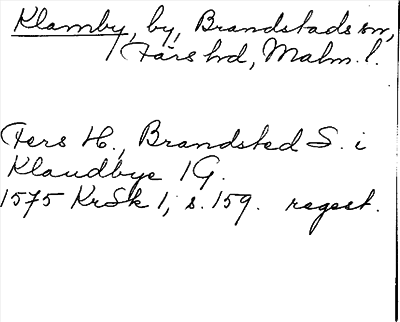 Klamby, by, Brandstads sn,
Färs hd, Malm. l.
Fers H., Brandsted S. i
Klaudbye 1 G.
1575 KrSk 1, s. 159. regest.